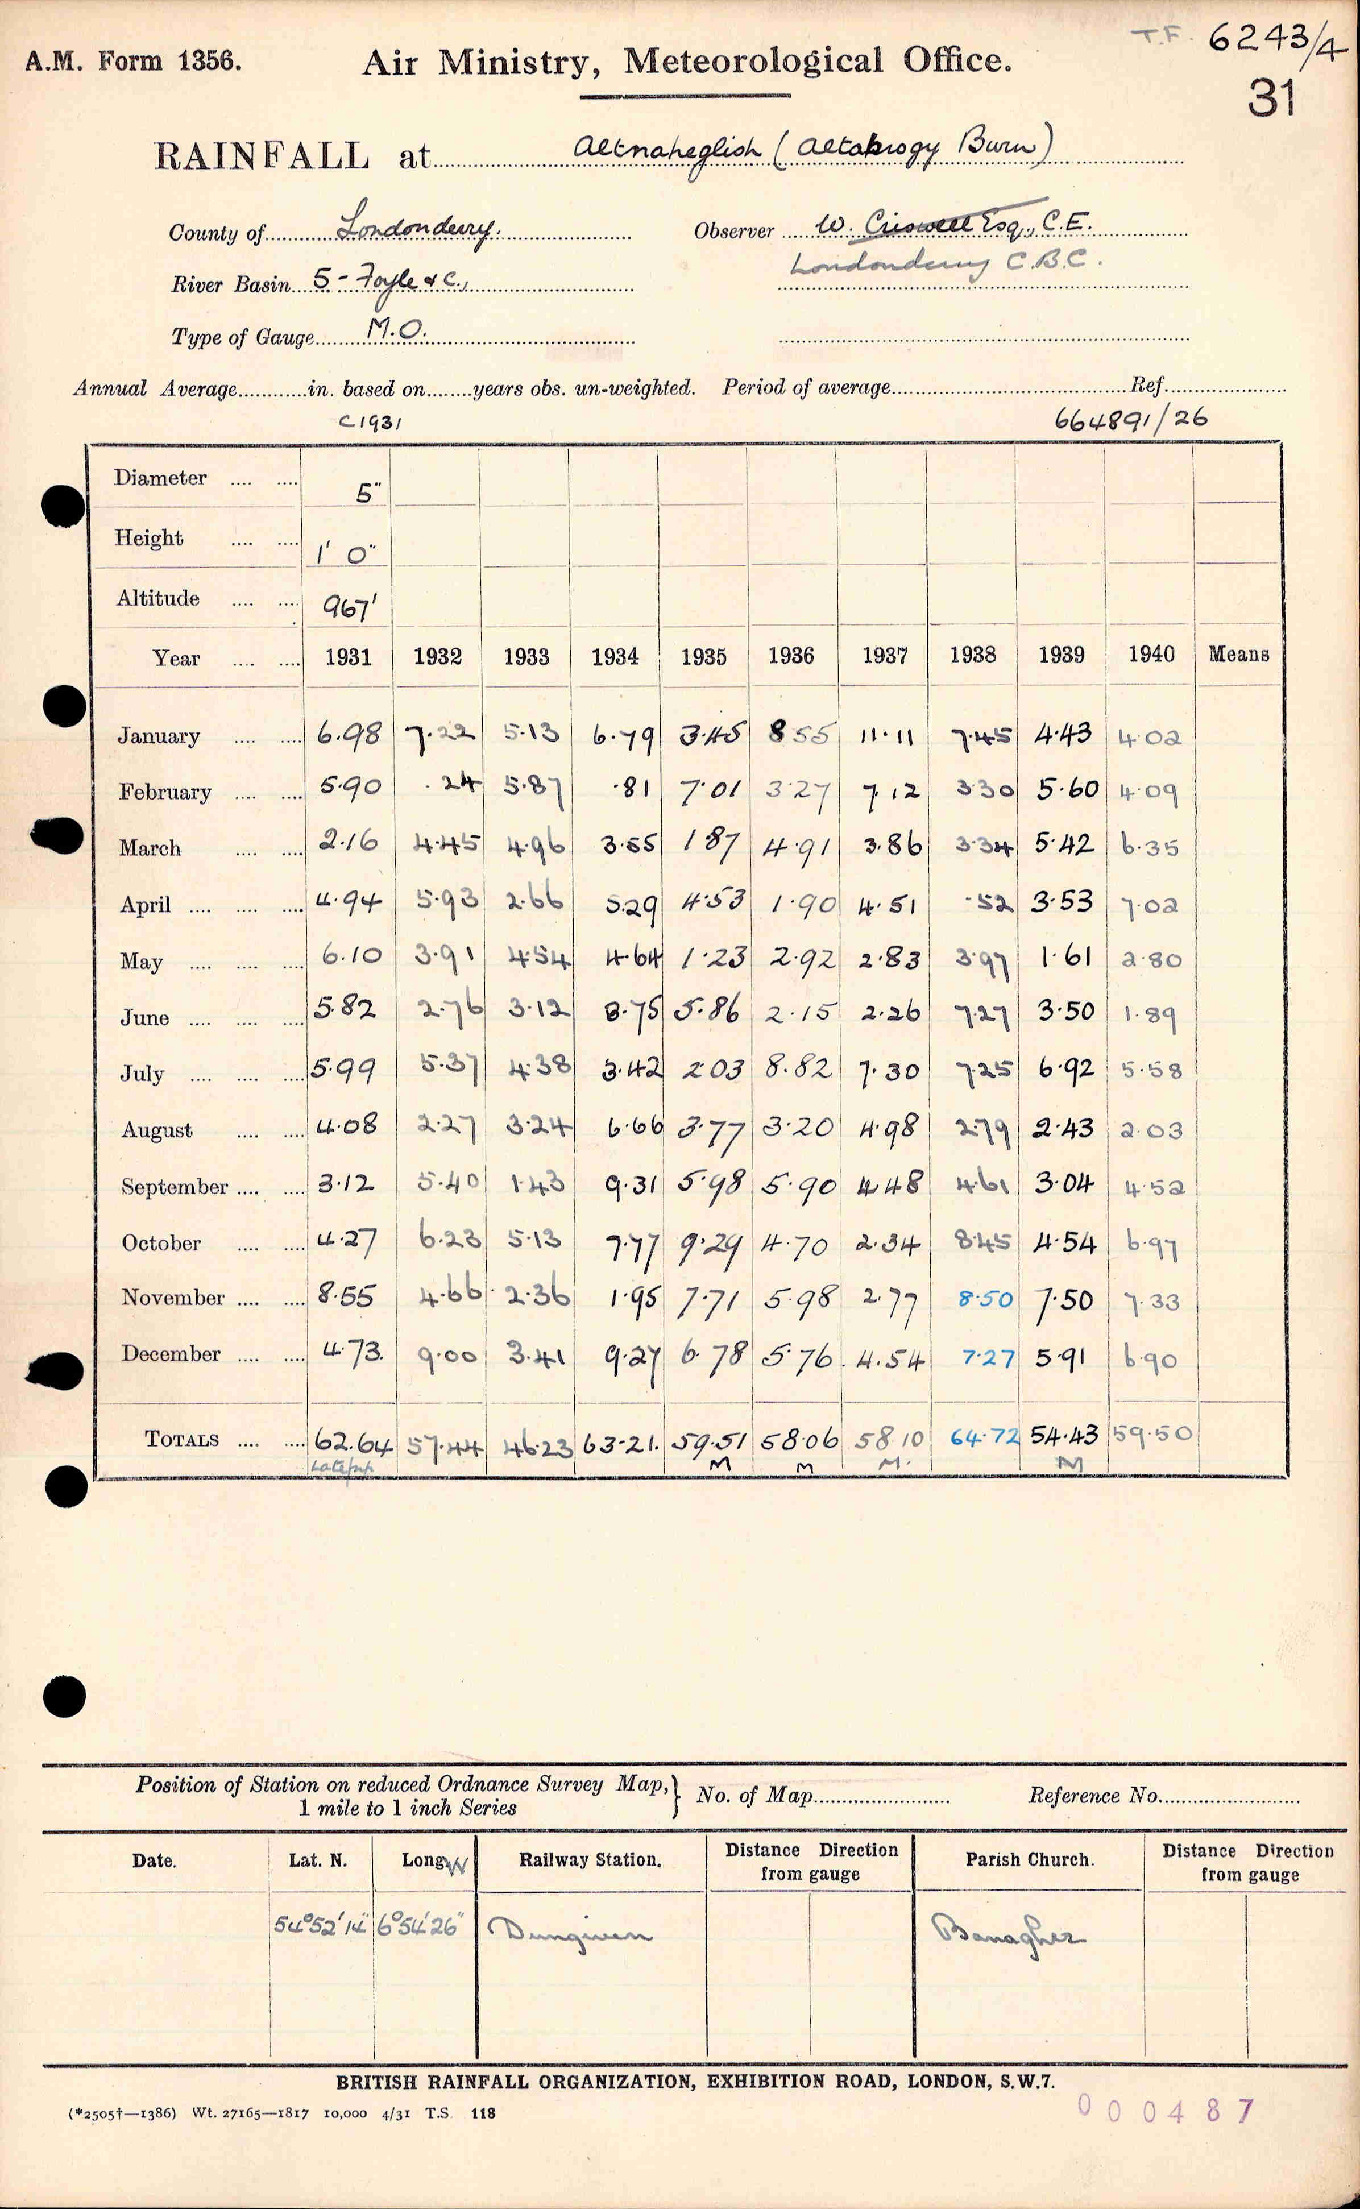 T.F. 6243/4
A.M. Form 1356. Air Ministry, Meteorological Office.
31
RAINFALL at Altnaheglish (Altabrogy Burn)
County of Londonderry. Observer W. Criswell Esq., C.E.
Londonderry C.B.C.
River Basin 5 - Foyle & C.,
Type of Gauge M.O.
Annual Average in. based on years obs. un-weighted. Period of average Ref.
C1931 664891/26
Diameter .... .... 5"
Height .... .... 1' 0"
Altitude .... .... 967'
Year .... .... 1931 1932 1933 1934 1935 1936 1937 1938 1939 1940 Means
January .... .... 6.98 7.22 5.13 6.79 3.45 8 55 11.11 7.45 4.43 4.02
February .... .... 5.90 .24 5.87 .81 7.01 3.27 7.12 3.30 5.60 4.09
March .... .... 2.16 4.45 4.96 3.55 1.87 4.91 3.86 3.34 5.42 6.35
April .... .... .... 4.94 5.93 2.66 5.29 4.53 1.90 4.51 .52 3.53 7.02
May .... .... .... 6.10 3.91 4.54 4.64 1.23 2.92 2.83 3.97 1.61 2.80
June .... .... .... 5.82 2.76 3.12 3.75 5.86 2.15 2.26 7.27 3.50 1.89
July .... .... .... 5.99 5.37 4.38 3.42 2.03 8.82 7.30 7.25 6.92 5.58
August .... .... 4.08 2.27 3.24 6.66 3.77 3.20 4.98 2.79 2.43 2.03
September .... .... 3.12 5.40 1.43 9.31 5.98 5.90 4.48 4.61 3.04 4.52
October .... .... 4.27 6.23 5.13 7.77 9.29 4.70 2.34 8.45 4.54 6.97
November .... .... 8.55 4.66 2.36 1.95 7.71 5.98 2.77 8.50 7.50 7.33
December .... .... 4.73. 9.00 3.41 9.27 6.78 5.76 4.54 7.27 5.91 6.90
TOTALS .... .... 62.64 57.44 46.23 63.21. 59.51 58.06 58 10 64.72 54.43 59.50
M M M. M
Position of Station on reduced Ordnance Survey Map,} No. of Map Reference No.
1 mile to 1 inch Series
Date. Lat. N. Long. W Railway Station. Distance Direction Parish Church. Distance Direction
from gauge from gauge
54°52'14" 6°54'26" Dungiven Banagher
BRITISH RAINFALL ORGANIZATION, EXHIBITION ROAD, LONDON, S.W.7.
(*2505†—1386) Wt. 27165—1817 10,000 4/31 T.S. 118
000487